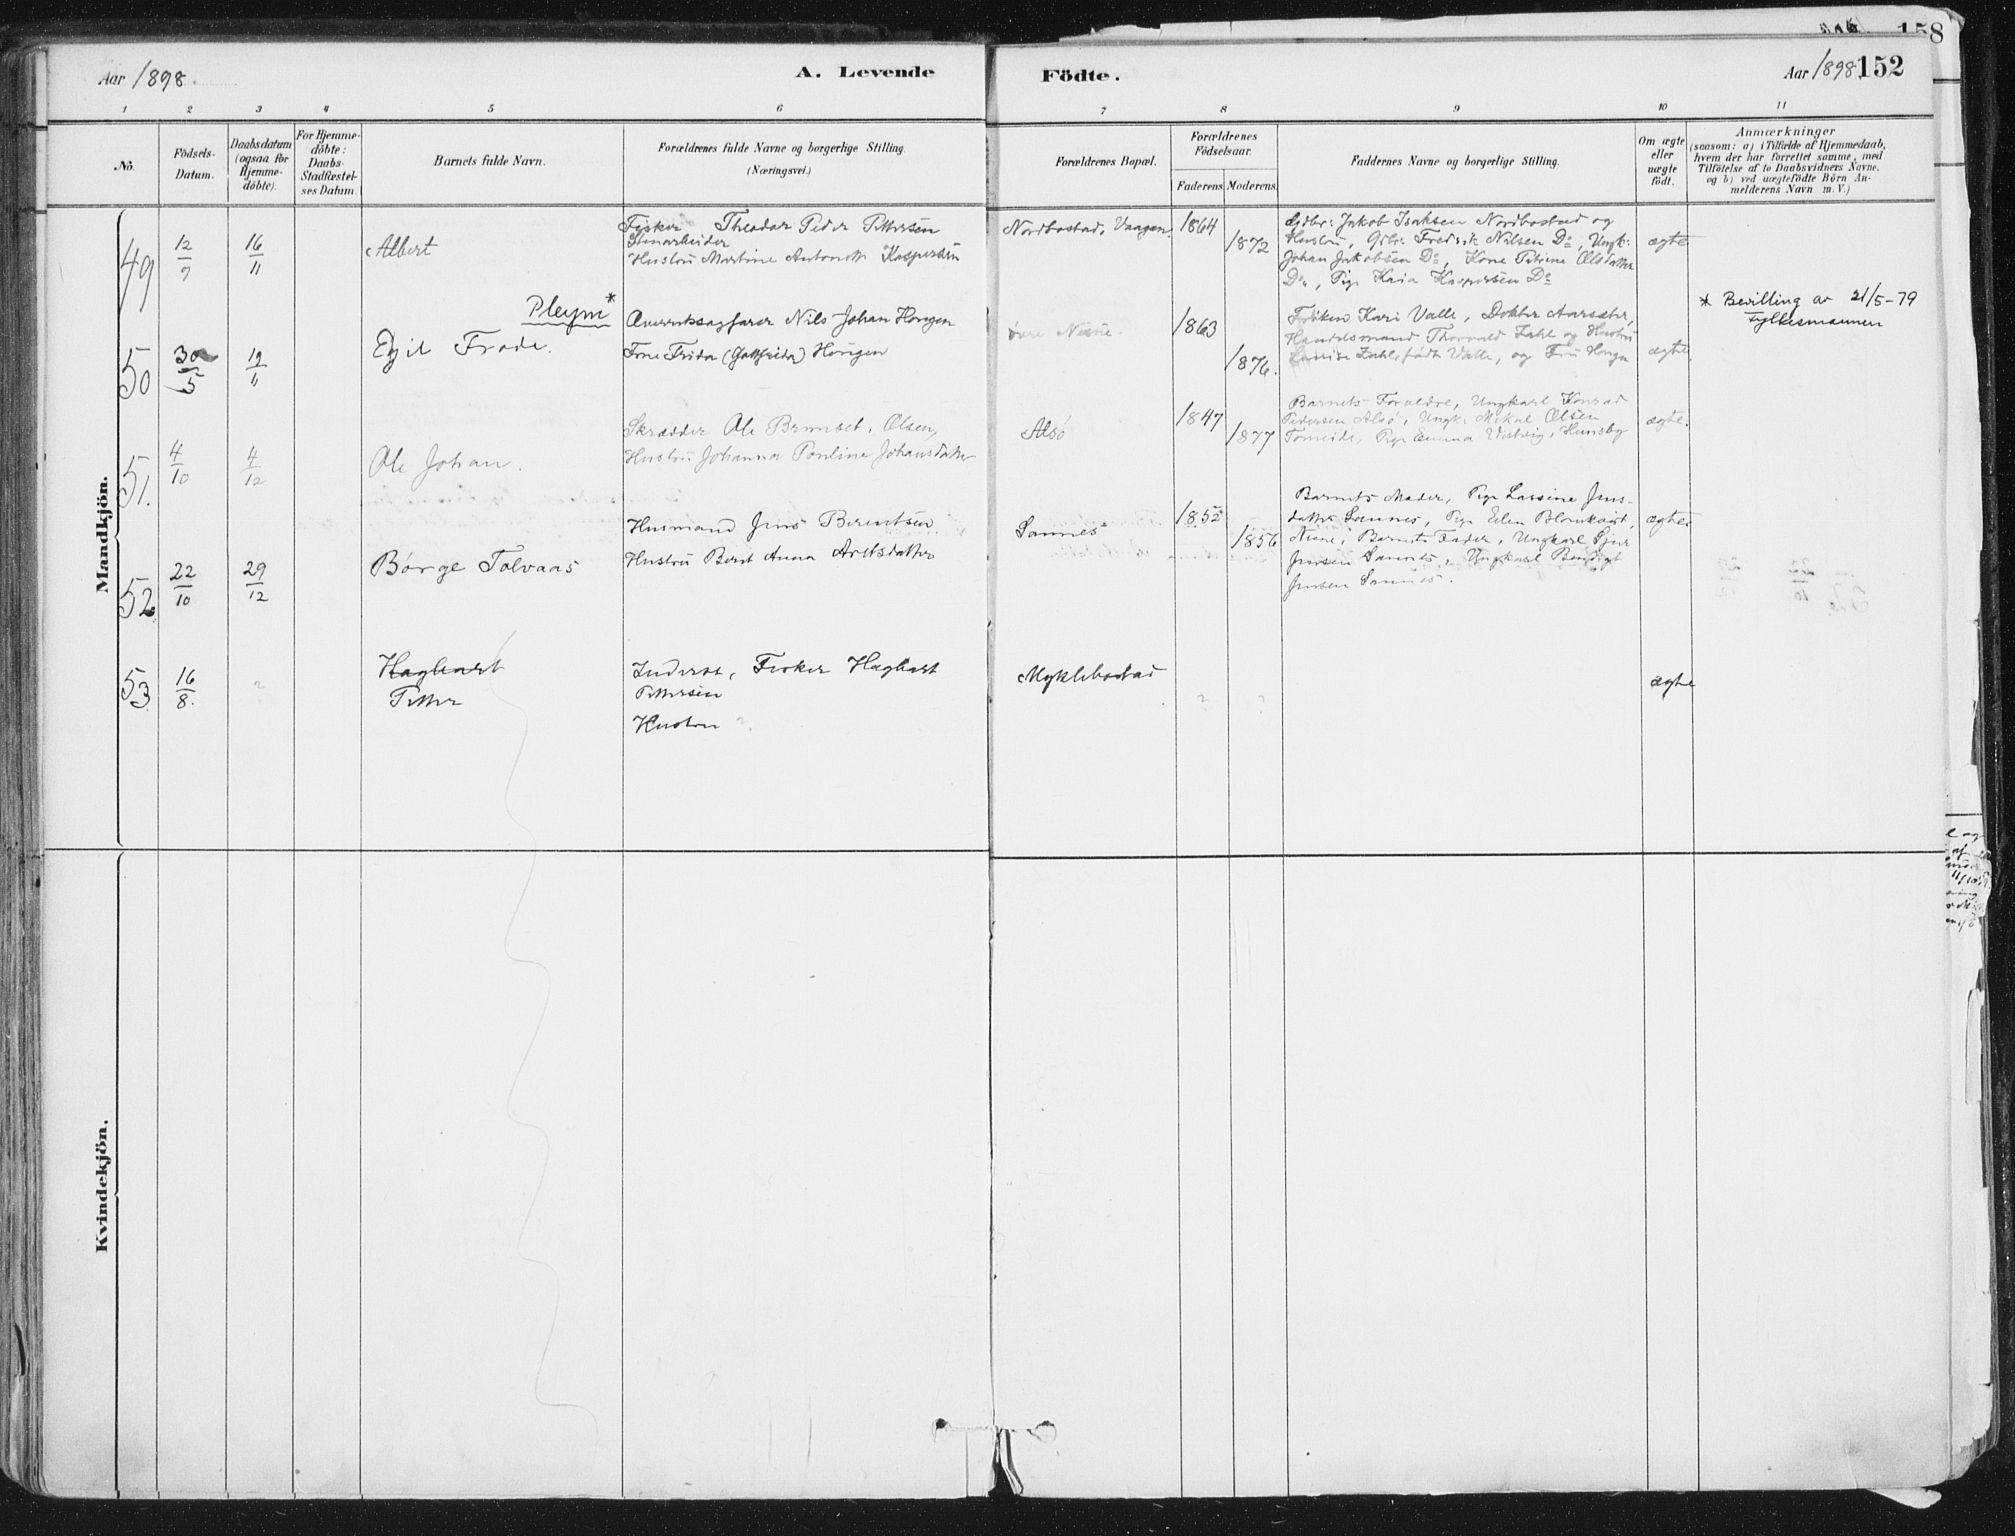 Aar 1898.
A. Levende
Födte.
Aar 1898
152
158
1 2 3 4 5 6 7 8 9 10 11
No.
Födsels-
Datum.
Daabsdatum
(ogsaa for
Hjemme-
döbte).
For Hjemme-
döbte:
Daabs-
Stadfæstel-
ses Datum.
Barnets fulde Navn.
Forældrenes fulde Navne og borgerlige Stilling.
(Næringsvei.)
Forældrenes Bopæl.
Forældrenes
Födselsaar.
Faderens.
Moderens.
Faddernes Navne og borgerlige Stilling.
Om ægte
eller
uægte
födt.
Anmærkninger
(saasom: a) i Tilfælde af Hjemmedaab,
hvem der har forrettet samme, med
Tilföielse af to Daabsvidners Navne,
og b) ved uægtefödte Börn An-
melderens Navn m. V.)
Mandkjön.
49
12/7
16/11
Albert
Fisker Theodor Peder Pettersen
Stenarbeider
Hustru Martine Antonette Kaspersen
Nordbostad, Vaagen.
1864
1872
Gdbr: Jakob Isaksen Nordbostad og
Hustru, Gdbr: Fredrik Nilsen Do, Ungk:
Johan Jakobsen Do, Kone Petrine Olsdatter
Do, Pige Karia Kaspersen Do
ægte
50
30/5
19/11
Pleym *
Egil Frode.
Overretssagfører Nils Johan Hongen
Frida (Gottfrida) Hongen
Nesne.
1863
1876.
Frøken Kari Valle, Doktor Aarsæter,
Handelsmand Thorvald Zahl og Hustru
Lovise Zahl, født Valle, og Fru Hongen
ægte
* Bevilling av 21/5-79
Fylkesmannen
51.
4/10
4/12
Ole Johan.
Skrædder Ole Olsen,
Hustru Johanna Pauline Johansdatter
Alsö
1847
1877
Barnets Forældre, Ungkarl Konrad
Pedersen Alsö, Ungk. Mikal Olsen
Tomeide, Pige Emma Hunsby
ægte.
52.
22/10
29/12
Børge Tolvaas
Husmand Jens Berentsen.
Hustru Berit Anna Arntsdatter
Sannes
1852
1856
Barnets Moder, Pige Lassine Jens-
datter Sannes, Pige Elen Blomkvist,
Nesne, Barnets Fader, Ungkarl Sjur
Jensen Sannes, Ungkarl Bendigt
Jensen Sannes.
ægte
53.
16/8.
?
Hagbart
Petter
Inderst, Fisker Hagbart
Pettersen
Hustru ?
Myklebostad
?
?
ægte
Kvindekjön.